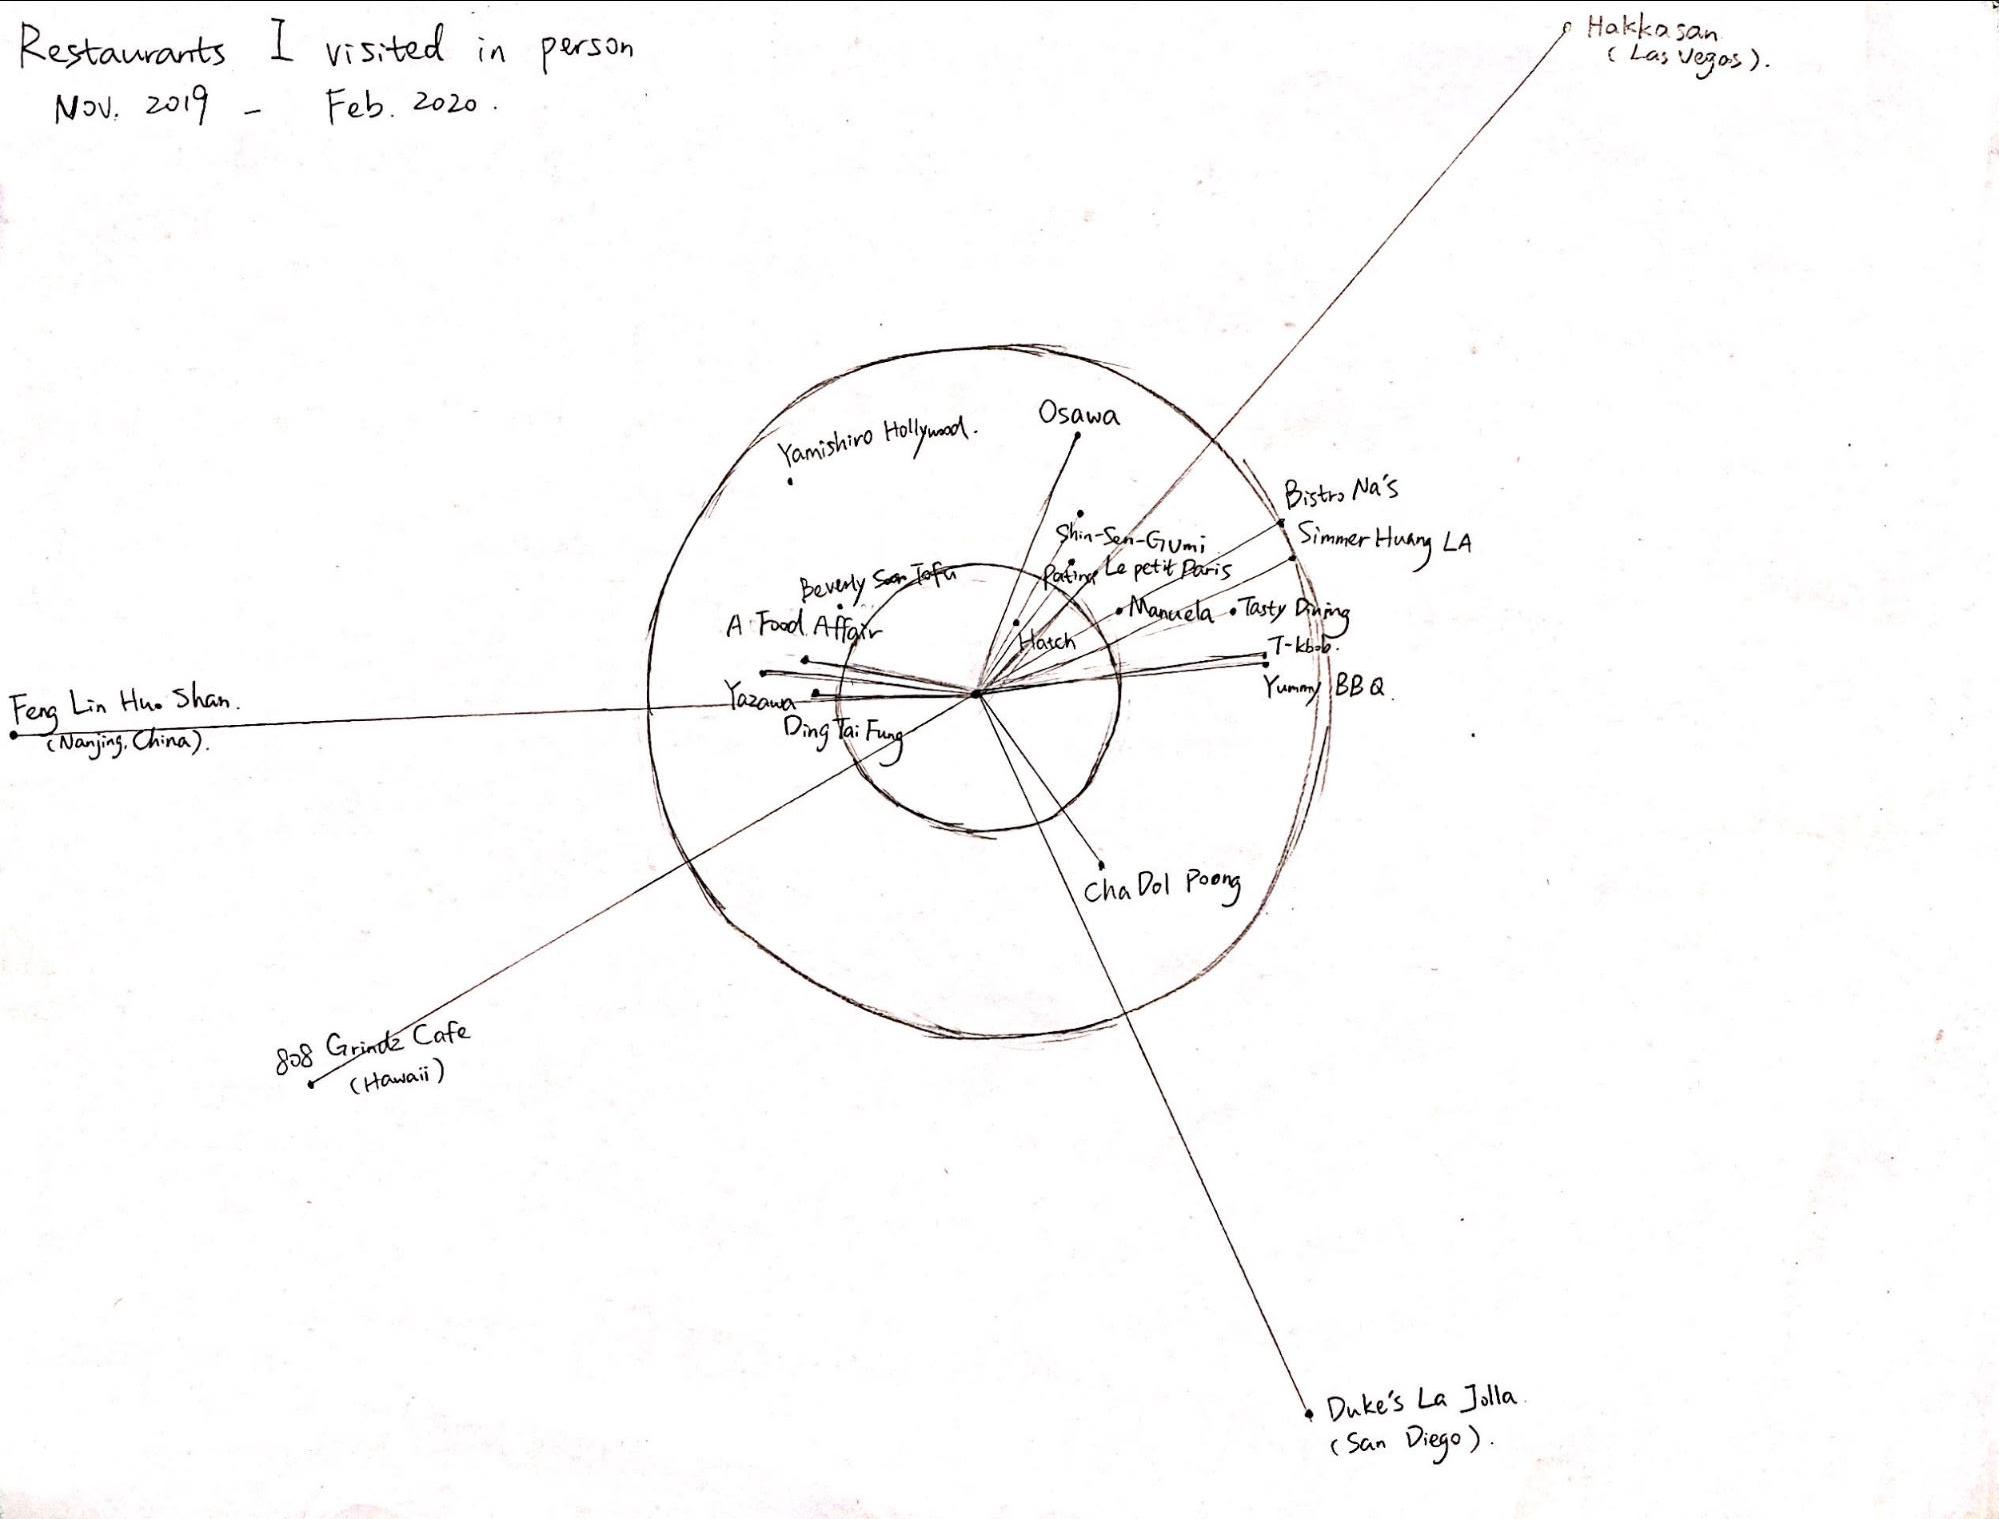 Restaurants I visited in person
Nov. 2019 - Feb. 2020.
Hakkasan
(Las Vegas).
Osawa
Yamishiro Hollywood.
Bistro Na's
Simmer Huang LA
Shin-Sen-Gumi
Patina Le petit Paris
Beverly Soon Tofu
A Food Affair
Manuela
Tasty Dining
Hatch
T-kbob.
Yummy BBQ.
Yazawa
Ding Tai Fung
Feng Lin Huo Shan.
(Nanjing, China).
Cha Dol Poong
808 Grindz Cafe
(Hawaii)
Duke's La Jolla
(San Diego).